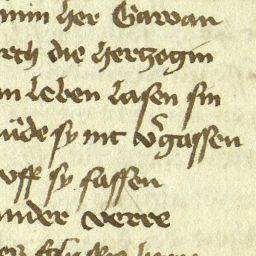 min her Gawan
rch die hertzogin
in leben lasen sin
üde sy nit v͛gassen
vff sy sassen
nder verre